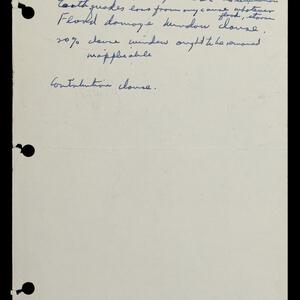 Earthquakes loss from any cause whatever
flood, storm
Flood damage window clause.
20% clause window ought to be removed
inapplicable
Contribution clause.